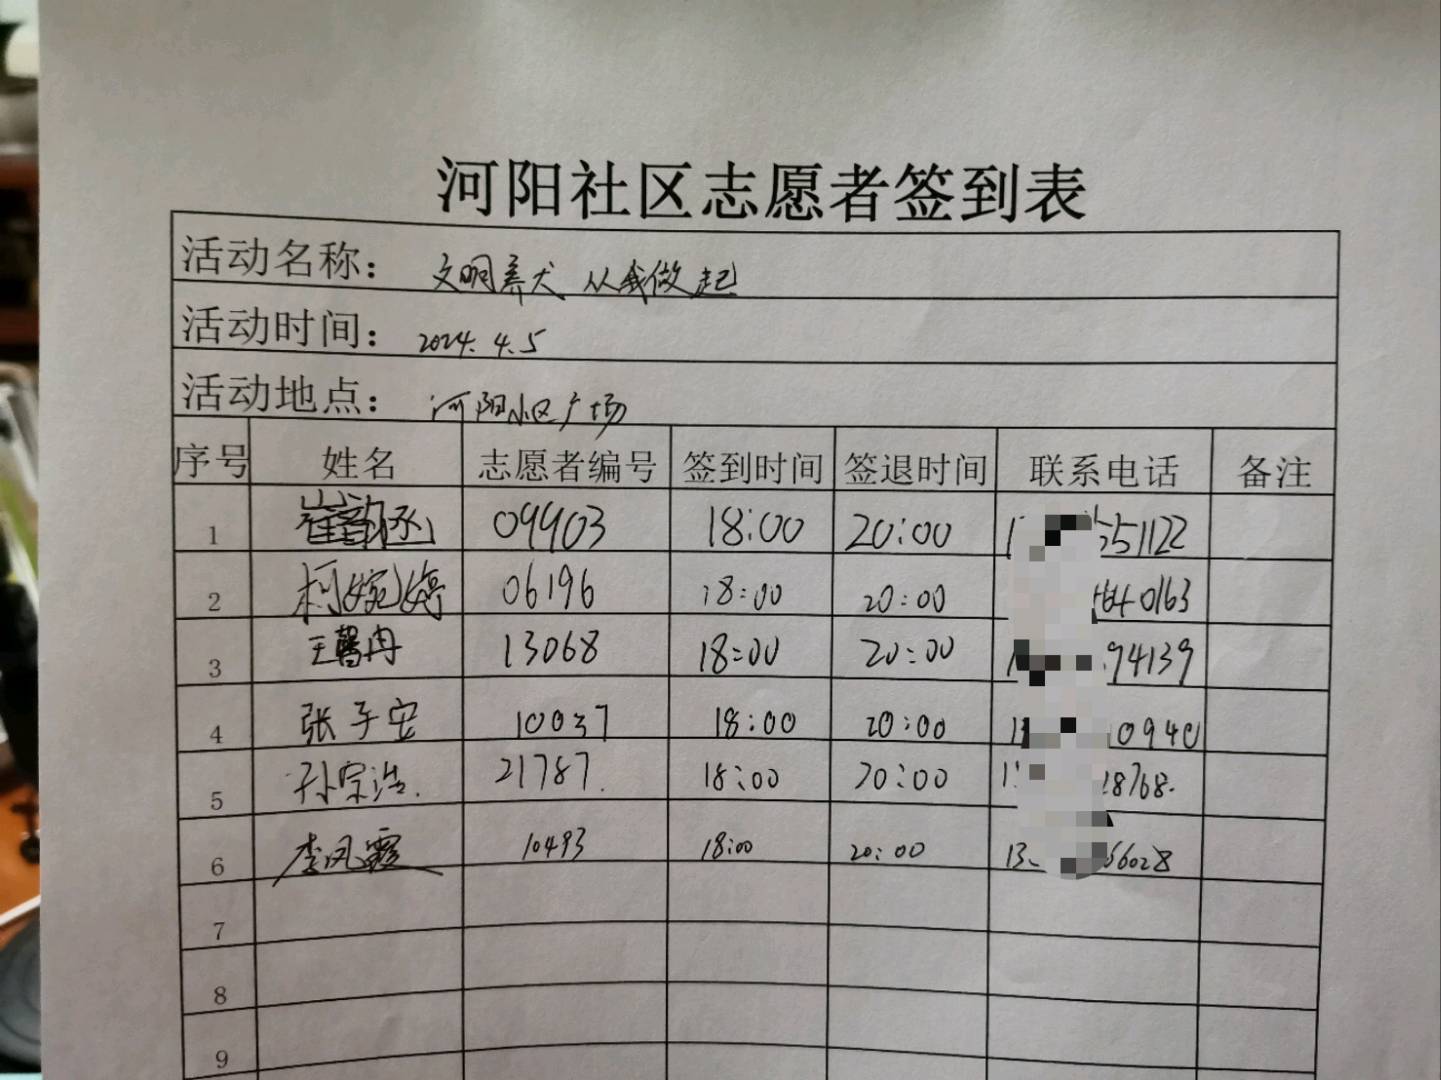 河阳社区志愿者签到表
活动名称： 文明养犬 从我做起
活动时间： 2024.4.5
活动地点： 河阳小区广场
序号 姓名 志愿者编号 签到时间 签退时间 联系电话 备注
1 崔韵丞 09903 18:00 20:00 1 551122
2 柯婉婷 06196 18:00 20:00 640163
3 王馨冉 13068 18:00 20:00 1 94139
4 张子安 10037 18:00 20:00 13 0940
5 孙宗浩. 21787. 18:00 20:00 1 28768.
6 李凤霞 10493 18:00 20:00 13 66028
7
8
9